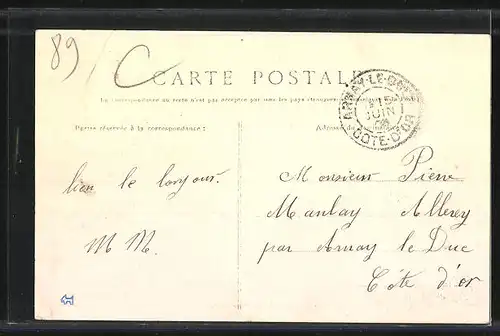 89
C
CARTE POSTALE
La correspondance au recto n'est pas acceptée par tous les pays étrangers
Partie réservée à la correspondance :
ARNAY-LE-DUC
JUIN
COTE-D'OR
bien le bonjour.
M M.
Monsieur Pierre
Manlay Allerey
par Arnay le Duc
Côte d'or